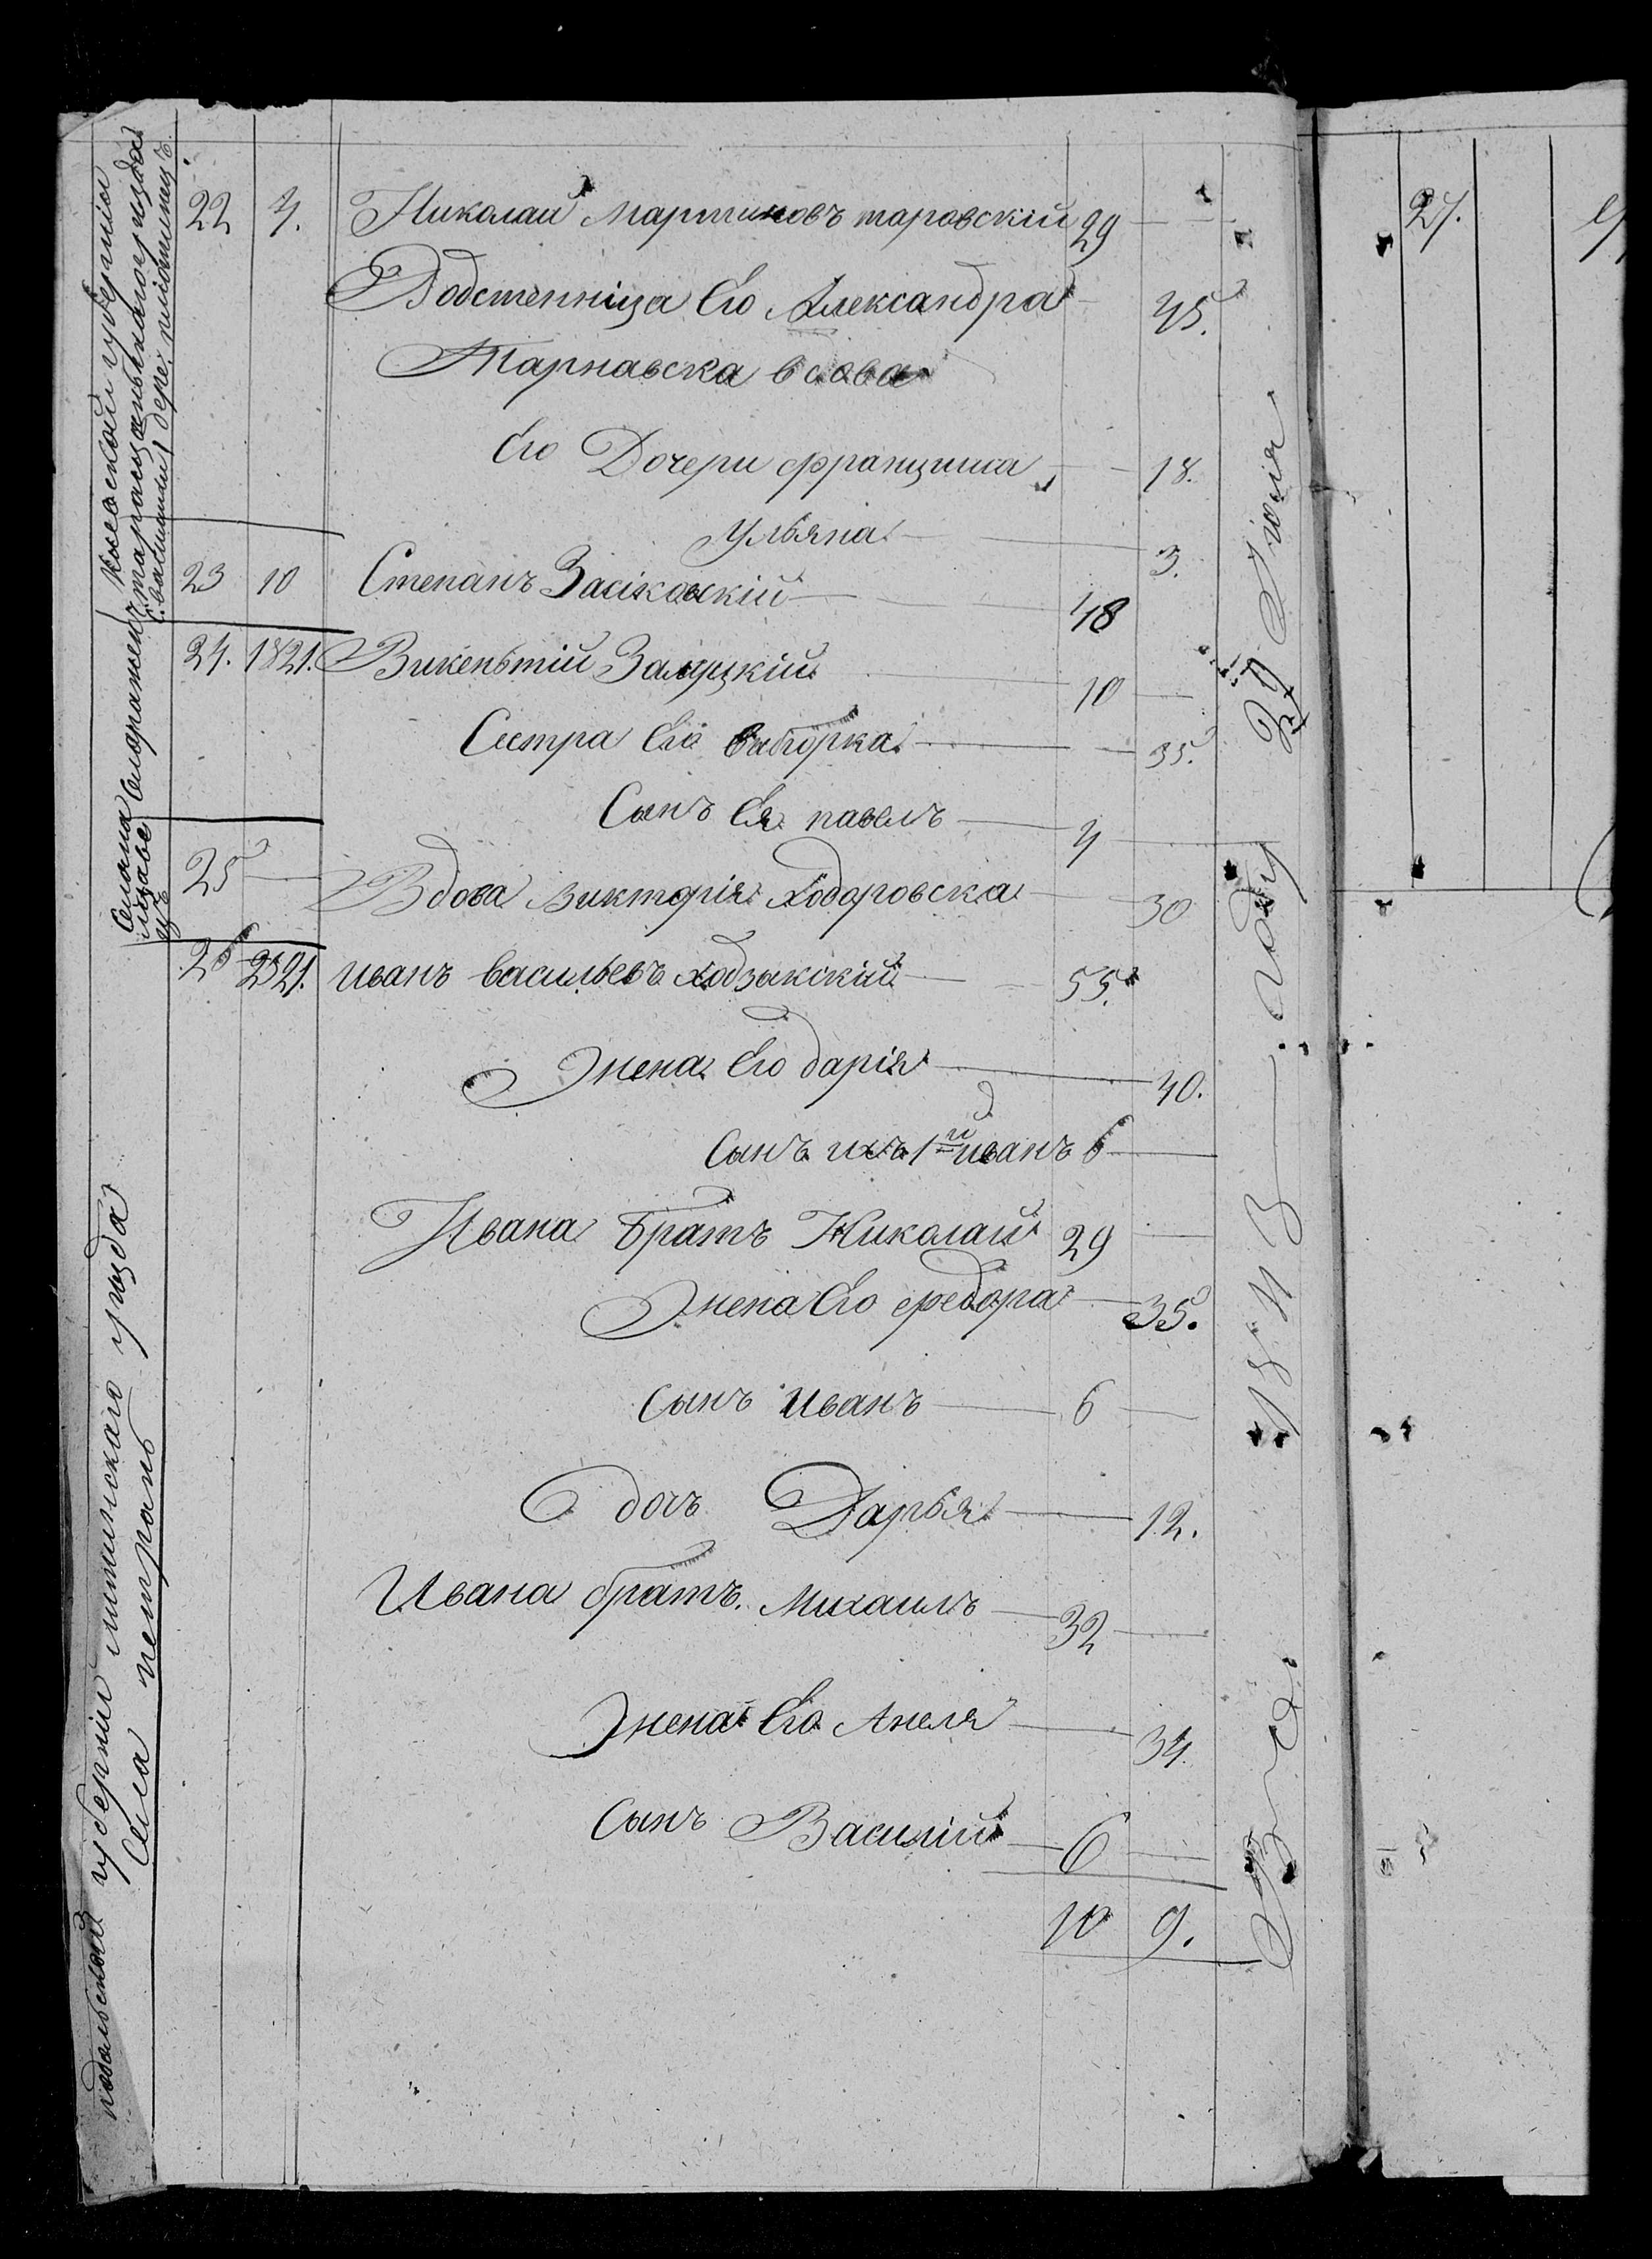 22 4. Николай Мартиновъ таровскій 29
Родственніца Его Александра 45.
Тарнавска вдова
Его Дочери францишка 18.
Ульяна 3.
23 10 Степанъ Засіковскій 48
24. 1821. Викентій Залуцкій 10
Сестра Его 35.
Сынъ Ея павелъ 4
25 Вдова Викторія Ходоровска 30
26 2321. Иванъ Васильевъ 55.
Жена Его Дарія 40.
Сынъ ихъ 1й Иванъ 6
Ивана братъ Николай 29
Жена Его Федора 35.
Сынъ Иванъ 6
дочь Дарья 12.
Ивана братъ. Михаилъ 32
Жена Его Анеля 34.
Сынъ Василій 6
10 9.
Киевской губерніи
таращанского уезда
Села
подольской губерніи литинского уезда
Села петрань
29 Іюля
1843 году
27.